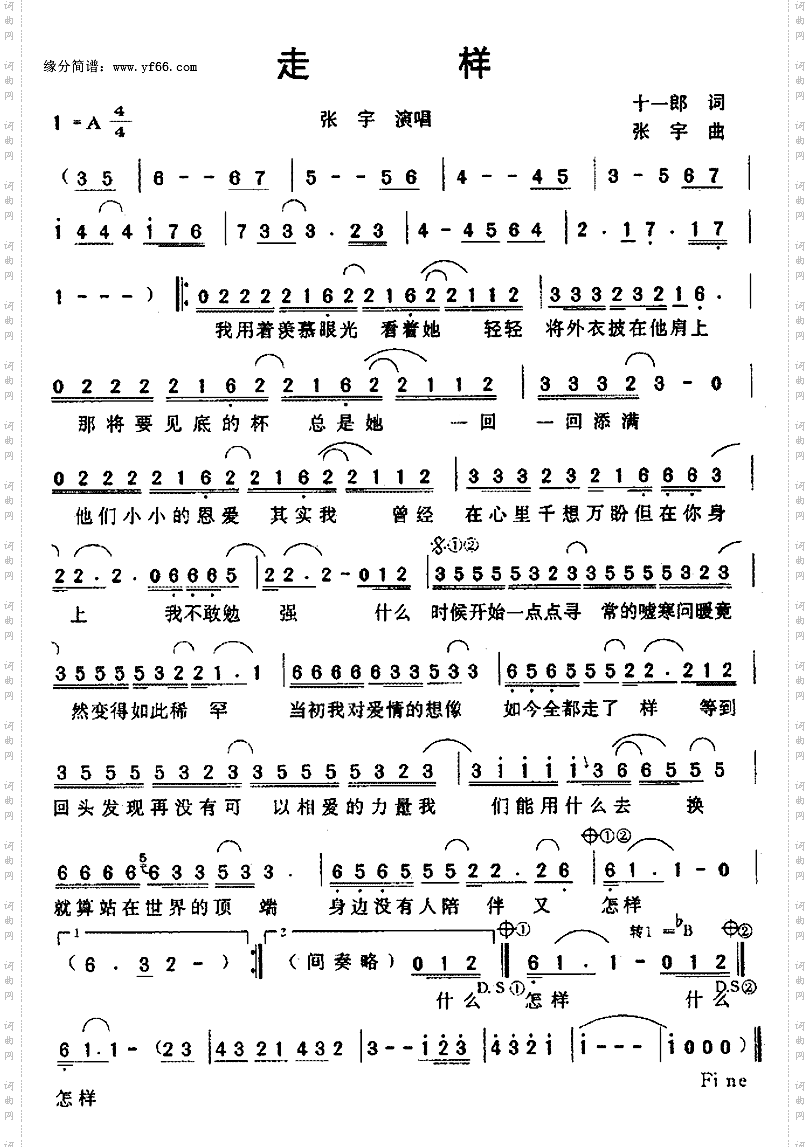 缘分简谱：www.yf66.com
走 样
1=A 4/4
张 宇 演唱
十一郎 词
张 宇 曲
(3 5 | 6 - - 6 7 | 5 - - 5 6 | 4 - - 4 5 | 3 - 5 6 7 |
i 4 4 4 i 7 6 | 7 3 3 3 . 2 3 | 4 - 4 5 6 4 | 2 . 1 7 . 1 7 |
1 - - - ) ‖: 0 2 2 2 2 1 6 2 2 1 6 2 2 1 1 2 | 3 3 3 2 3 2 1 6 .
我用着羡慕眼光 看着她 轻轻 将外衣披在他肩上
0 2 2 2 2 1 6 2 2 1 6 2 2 1 1 2 | 3 3 3 2 3 - 0
那将要见底的杯 总是她 一回 一回添满
0 2 2 2 2 1 6 2 2 1 6 2 2 1 1 2 | 3 3 3 2 3 2 1 6 6 6 3
他们小小的恩爱 其实我 曾经 在心里千想万盼但在你身
𝄋·①②
2 2 . 2 . 0 6 6 6 5 | 2 2 . 2 - 0 1 2 | 3 5 5 5 5 3 2 3 3 5 5 5 5 3 2 3
上 我不敢勉 强 什么 时候开始一点点寻 常的嘘寒问暖竟
3 5 5 5 5 3 2 2 2 1 . 1 | 6 6 6 6 6 3 3 5 3 3 | 6 5 6 5 5 5 2 2 . 2 1 2
然变得如此稀 罕 当初我对爱情的想像 如今全都走了 样 等到
3 5 5 5 5 3 2 3 3 5 5 5 5 3 2 3 | 3 i i i i 3 6 6 5 5 5
回头发现再没有可 以相爱的力量我 们能用什么去 换
⊕①②
6 6 6 6 6 3 3 5 3 3 . | 6 5 6 5 5 5 2 2 . 2 6 | 6 1 . 1 - 0
就算站在世界的顶 端 身边没有人陪 伴 又 怎样
1 2 ⊕① 转1=♭B ⊕②
( 6 . 3 2 - ) :‖ (间奏略) 0 1 2 ‖ 6 1 . 1 - 0 1 2 ‖
D.S① D.S②
什么 怎样 什么
6 1 . 1 - (2 3 | 4 3 2 1 4 3 2 | 3 - - i 2 3 | 4 3 2 i | i - - - | i 0 0 0 ) ‖
Fine
怎样